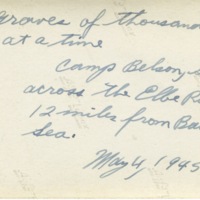 Graves of thousand
at a time
Camp Belson, 
across the Elbe R
12 miles from Ba
sea.
May 4, 1945